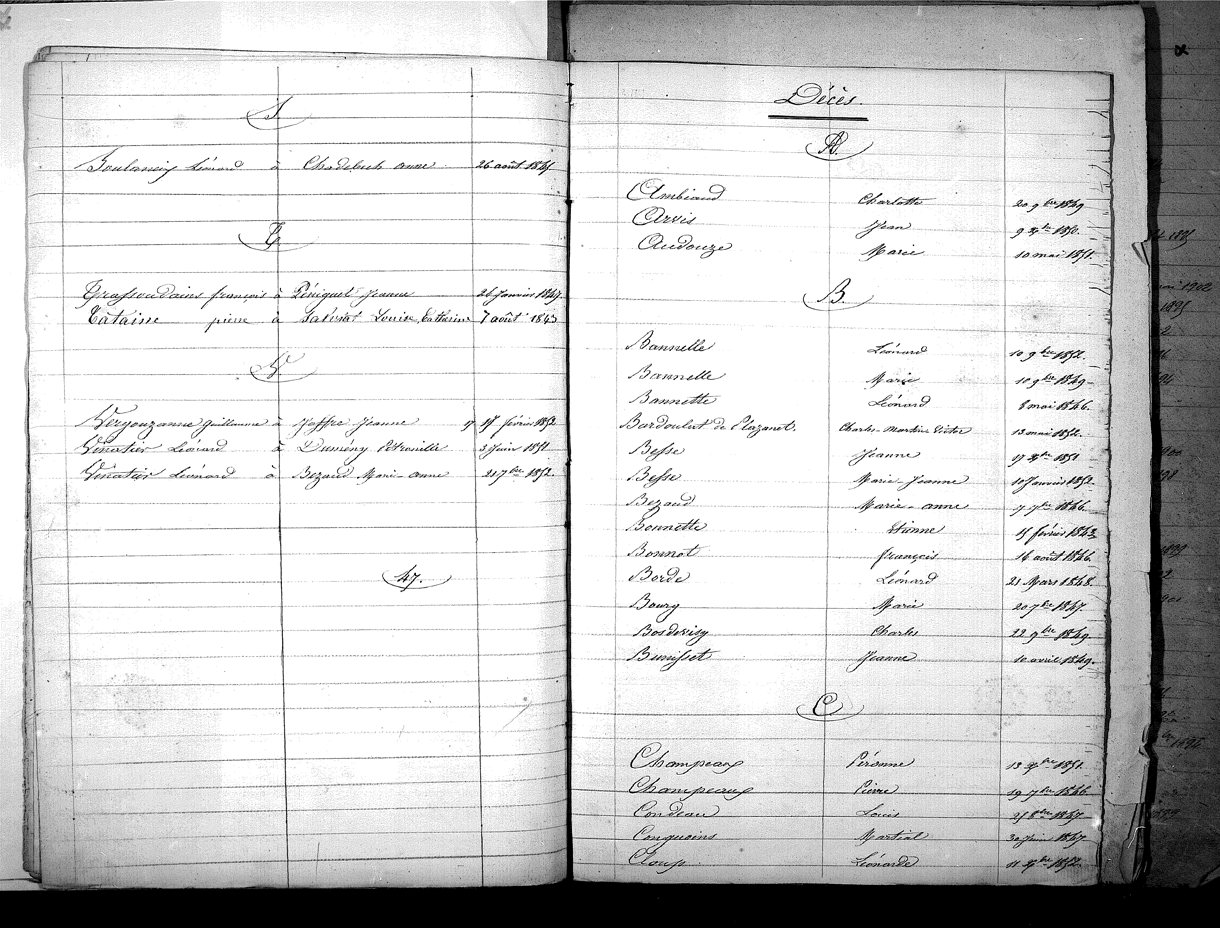 S
Soulanein Léonard à Chadebech anne 26 août 1845
T
Trassoudains françois à Péniquet Jeanne 26 Janvier 1847.
Tataine pierre à Salviat Louise, Catherine 7 août 1843
V
Vergouzanne Guillaume à Joffre Jeanne 17 février 1852
Venatier Léonard à Dumény Pétronille 3 Juin 1851
Venatier Léonard à Bezaud Marie-anne 21 7bre 1852
47.
Décès.
A.
Ambiaud Charlotte 20 9bre 1849
Arvis Jean 9 Xbre 1850.
Audouze Marie 10 mai 1851.
B.
Bannelle Léonard 10 9bre 1852.
Bannelle Marie 10 9bre 1849
Bannette Léonard 8 mai 1846.
Bardoulat de Plazanet. Charles-Martin-Victor 13 mai 1852.
Besse Jeanne 17 Xbre 1851
Besse Marie-Jeanne 10 Janvier 1852
Bezaud Marie-anne 7 7bre 1846.
Bonnette Etienne 15 février 1843
Bonnot françois 16 août 1846.
Borde Léonard 21 Mars 1848.
Bourg Marie 20 7bre 1847.
Bosdevisy Charles 22 9bre 1849
Bunisset Jeanne 10 avril 1849.
C
Champeaux Péronne 13 Xbre 1851.
Champeaux Pierre 19 7bre 1846
Condeau Louis 25 8bre 1847
Conquoins Martial 30 Juin 1847
Cloup Léonarde 11 Xbre 1852.